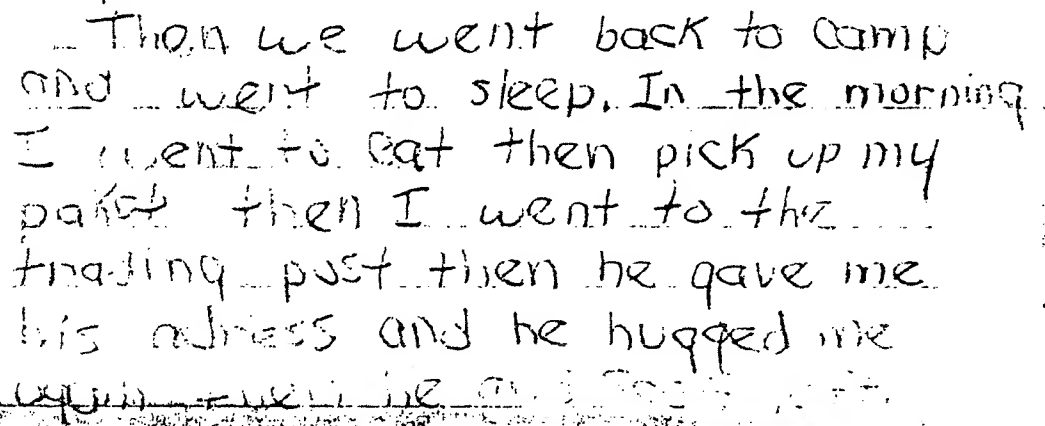 Then we went back to camp
and went to sleep. In the morning
I went to eat then pick up my
then I went to the
trading post then he gave me
his adress and he hugged me
again then he and